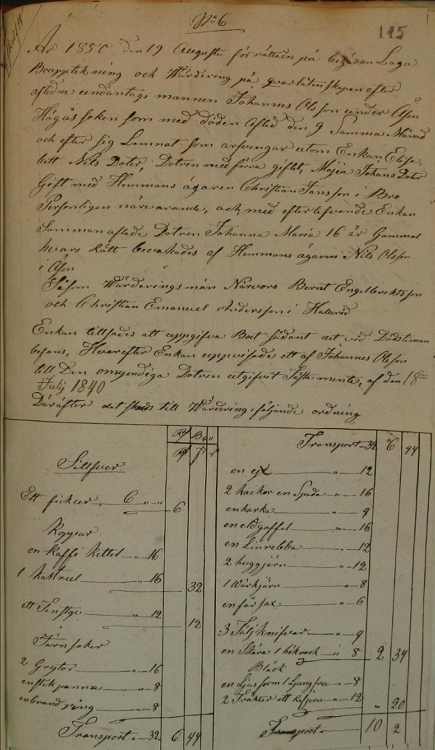 No 6
145
År 1850 den 19 Augusti förrättades på begäran Laga
Bouppteckning och Wärdering på qvarlåtenskapen efter
aflidne undantags mannen Johannes Olsson under Åsen
Högås soken som med döden afled den 9 Samma Månad
och efter sig Lemnat som arfvingar utom Enkan Elisa-
bett Nils Doter, Dotren med förra giftet, Maja Johans Doter
Gift med Hemmans ägaren Christian Jansson i Bro
Personligen närvarande, och med efterlefvande Enkan
Samman aflade Dotren Johanna Maria 16 år Gammal
hvars rätt bevakades af Hemmans ägaren Nils Olsson
i Åsen
Såsom Wärderings män Närvoro Bernt Engelbrecktsson
och Christian Emanuel Andersson i
Enkan tillsades att uppgifva Boet sådant det vid Dödstiman
befans, Hvarefter Enkan uppvisade ett af Johannes Olsson
till Den omyndiga Dotren utgifvit Testamente, af den 18
Julj 1840
Därefter det till Wärdering följande ordning
Silfver
Ett 6 " " 6
Koppar
en Kaffe Kettel " 16
1 " 16 32
ett " 12 12
Järnsaker
2 Grytor " 16
en stek panna " 8
en brand ring " 8
Transport " 32 6 44
Transport " 32 6 44
en yx " 12
2 hackor en Spada " 16
en harka " 4
en eldgaffel " 16
en " 12
2 huggjärn " 12
1 " 8
en fårsax " 6
3 Täljknifvar " 4
en Skära 1 " 8 2 34
Bläck
en Ljusform 1 " 8
2 Trakter ett " 12 " 20
Transport 10 2